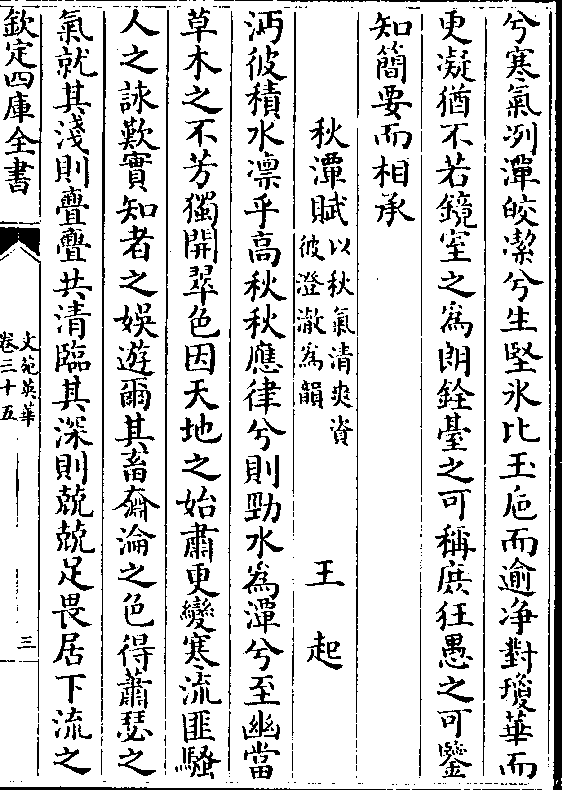 兮寒氣冽潭皎潔兮生堅氷比玉巵而逾净對瓊華而
更凝猶不若鏡室之為朗銓臺之可稱庶狂愚之可鑒
知簡要而相承
秋潭賦 以秋氣清爽資彼澄澈為韻 王起
沔彼積水凛乎髙秋秋應律兮則勁水為潭兮至幽當
草木之不芳獨開翠色因天地之始肅更變寒流匪騷
人之詠歎實知者之娛遊爾其畜奫淪之色得蕭瑟之
氣就其淺則亹亹共清臨其深則兢兢足畏居下流之
欽定四庫全書
文苑英華
卷三十五
三